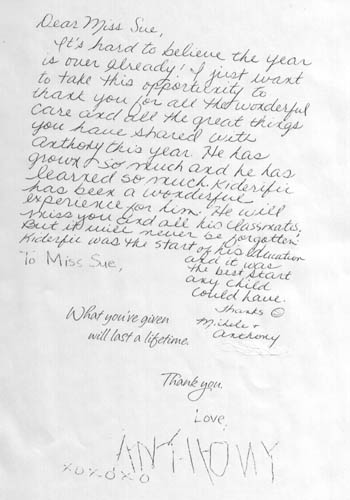 Dear Miss Sue,
It's hard to believe the year
is over already! I just want
to take this opportunity to
thank you for all the wonderful
care and all the great things
you have shared with
Anthony this year. He has
grown so much and he has
learned so much. Kiderific
has been a wonderful
experience for him. He will
miss you and all his classmates.
But it will never be forgotten.
Kiderific was the start of his education
and it was
the best start
any child
could have.
Thanks ☺
Michele +
Anthony
To Miss Sue,
What you've given
will last a lifetime.
Thank you.
Love,
ANTHONY
XOXOXO